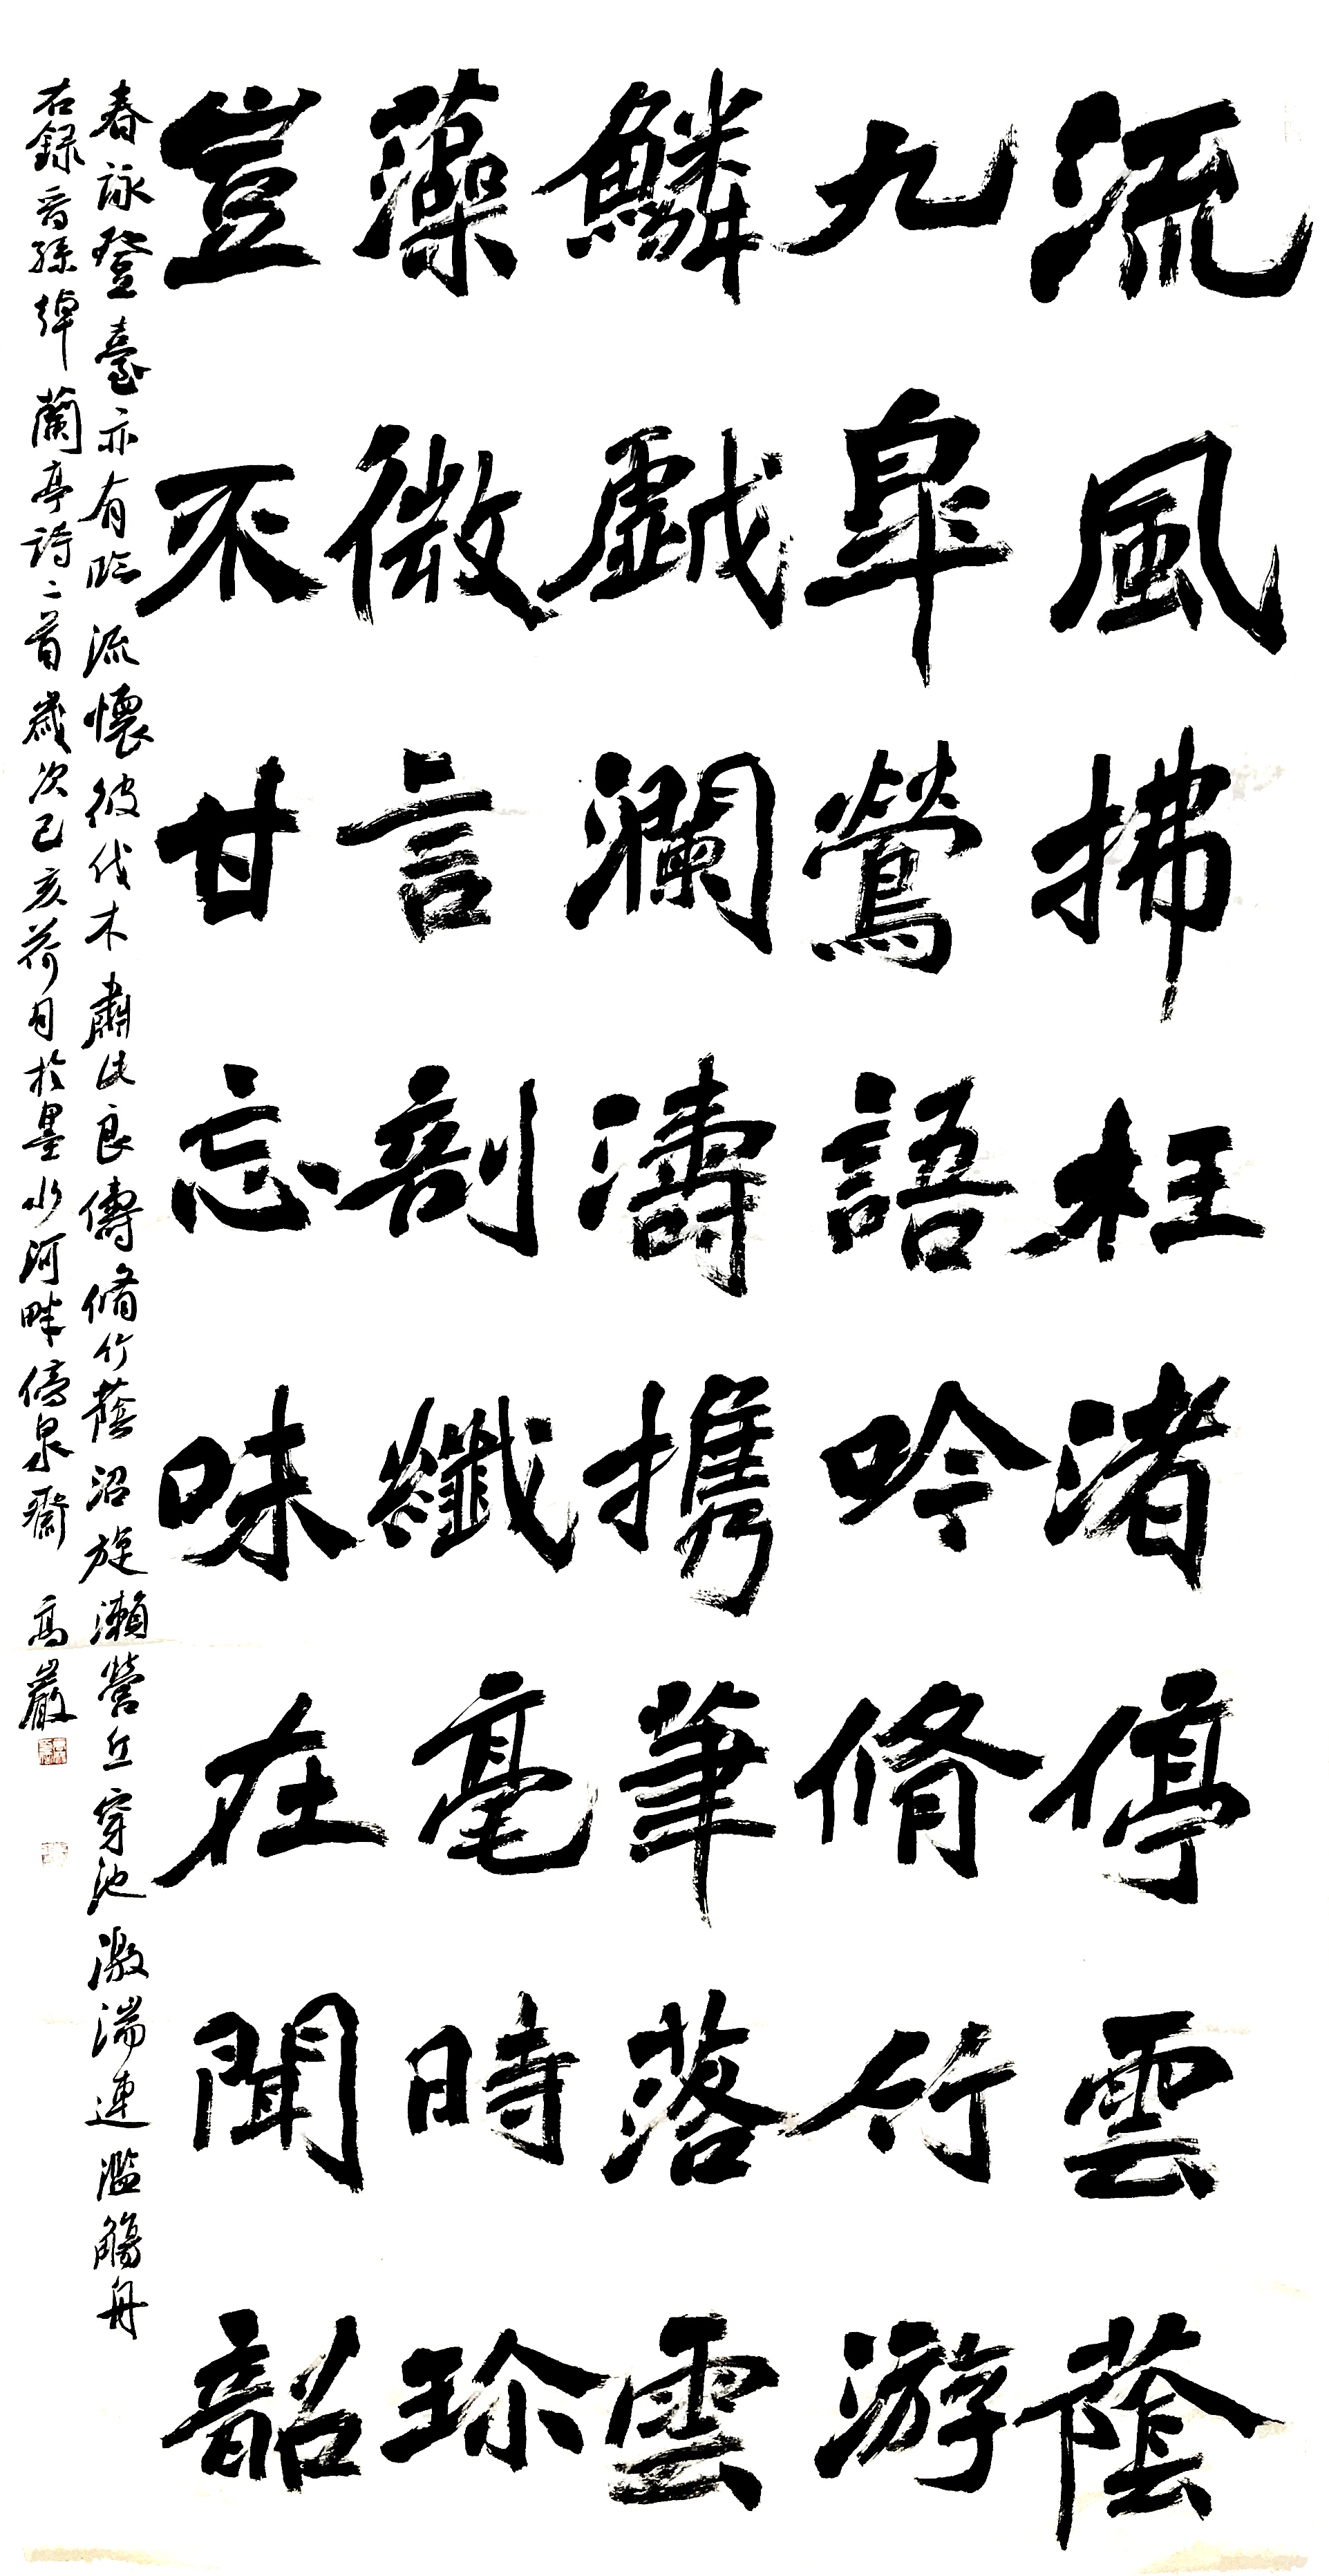 流風拂枉渚停雲蔭
九皐鶯語吟脩竹游
鱗戯瀾濤携筆落雲
藻微言剖纖毫時珍
豈不甘忘味在聞韶
春詠登臺亦有臨流懷彼伐木肅此良儔脩竹蔭沼旋瀨縈丘穿池激湍連濫觴舟
右録晉孫綽蘭亭詩二首歲次己亥荷月於墨水河畔停泉齋 高巖